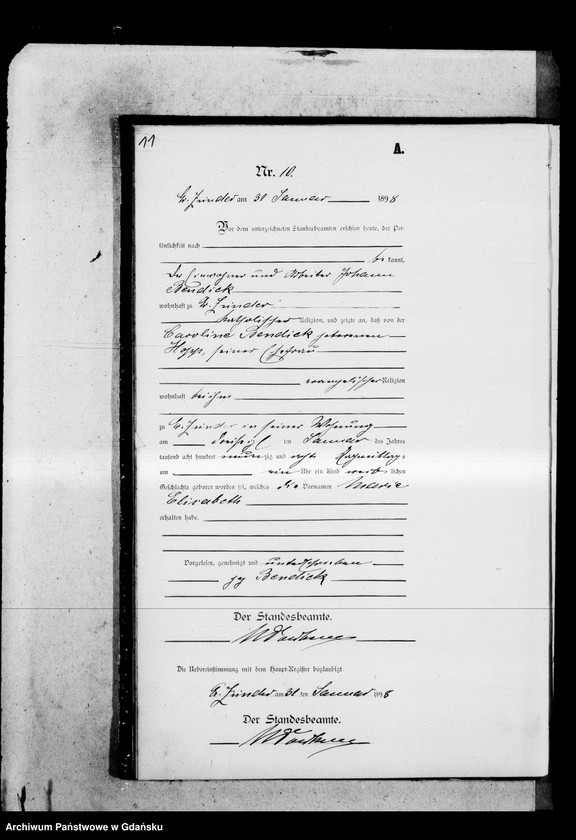 11
A.
Nr. 10.
Gr. Zünder am 31 Januar 1898
Vor dem unterzeichneten Standesbeamten erschien heute, der Per-
sönlichkeit nach
be kannt,
Der Einwohner und Arbeiter Johann
Bendick
wohnhaft zu Gr. Zünder
katholischer Religion, und zeigte an, daß von der
Caroline Bendick geborenen
Hopp, seiner Ehefrau
evangelischer Religion
wohnhaft bei ihm
zu Gr. Zünder in seiner Wohnung
am dreißig ten Januar des Jahres
tausend acht hundert neun zig und acht Nachmittags
um ein Uhr ein Kind weib lichen
Geschlechts geboren worden sei, welches die Vornamen Maria
Elisabeth
erhalten habe.
Vorgelesen, genehmigt und unterschrieben
gez Bendick
Der Standesbeamte.
Die Uebereinstimmung mit dem Haupt-Register beglaubigt
Gr. Zünder am 31 ten Januar 1898
Der Standesbeamte.
Archiwum Państwowe w Gdańsku